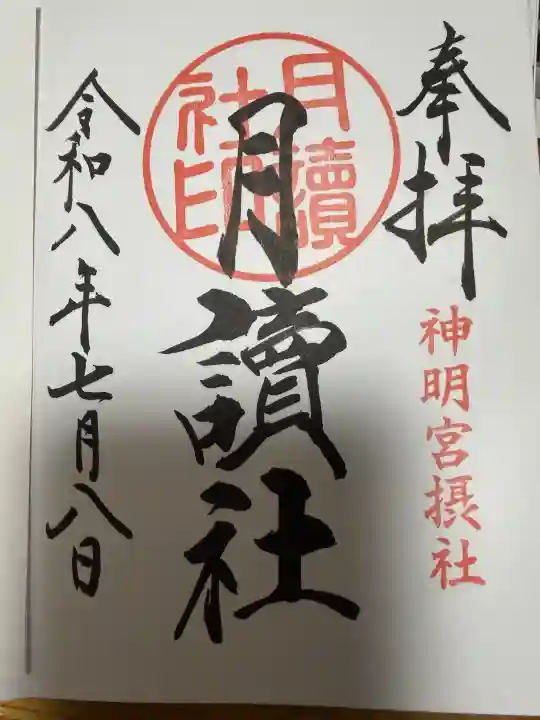 奉拝
神明宮摂社
月讀社
月讀社印
令和八年七月八日